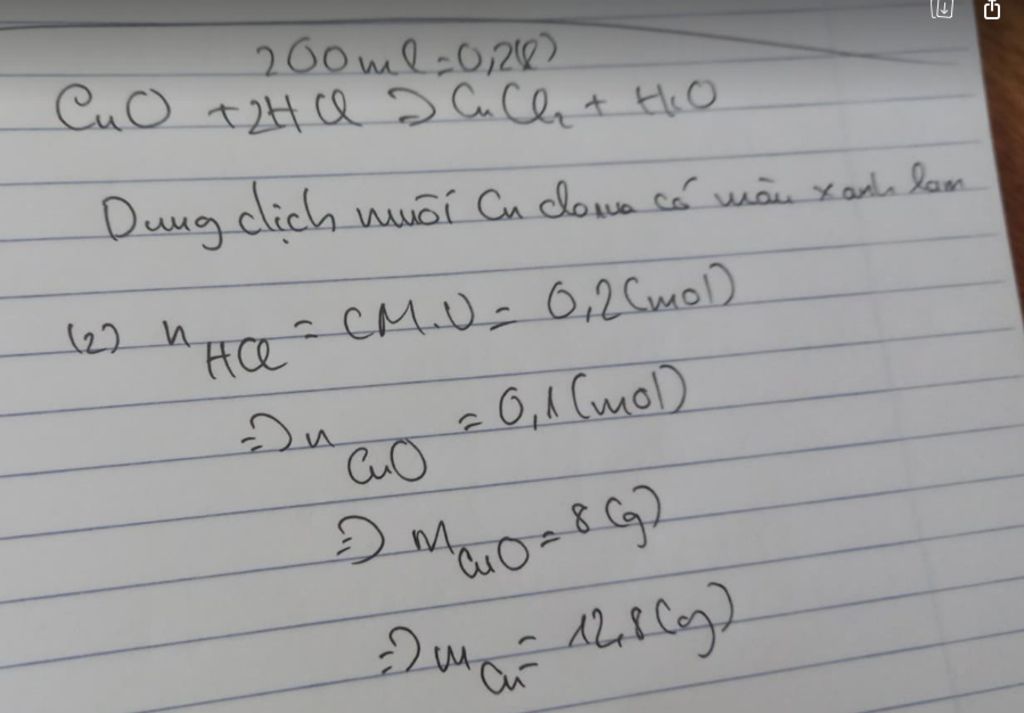 200ml = 0,2(l)
CuO + 2HCl => CuCl₂ + H₂O
Dung dịch muối Cu clorua có màu xanh lam
(2) n HCl = CM.V = 0,2 (mol)
=> n CuO = 0,1 (mol)
=> m CuO = 8 (g)
=> m Cu = 12,8 (g)